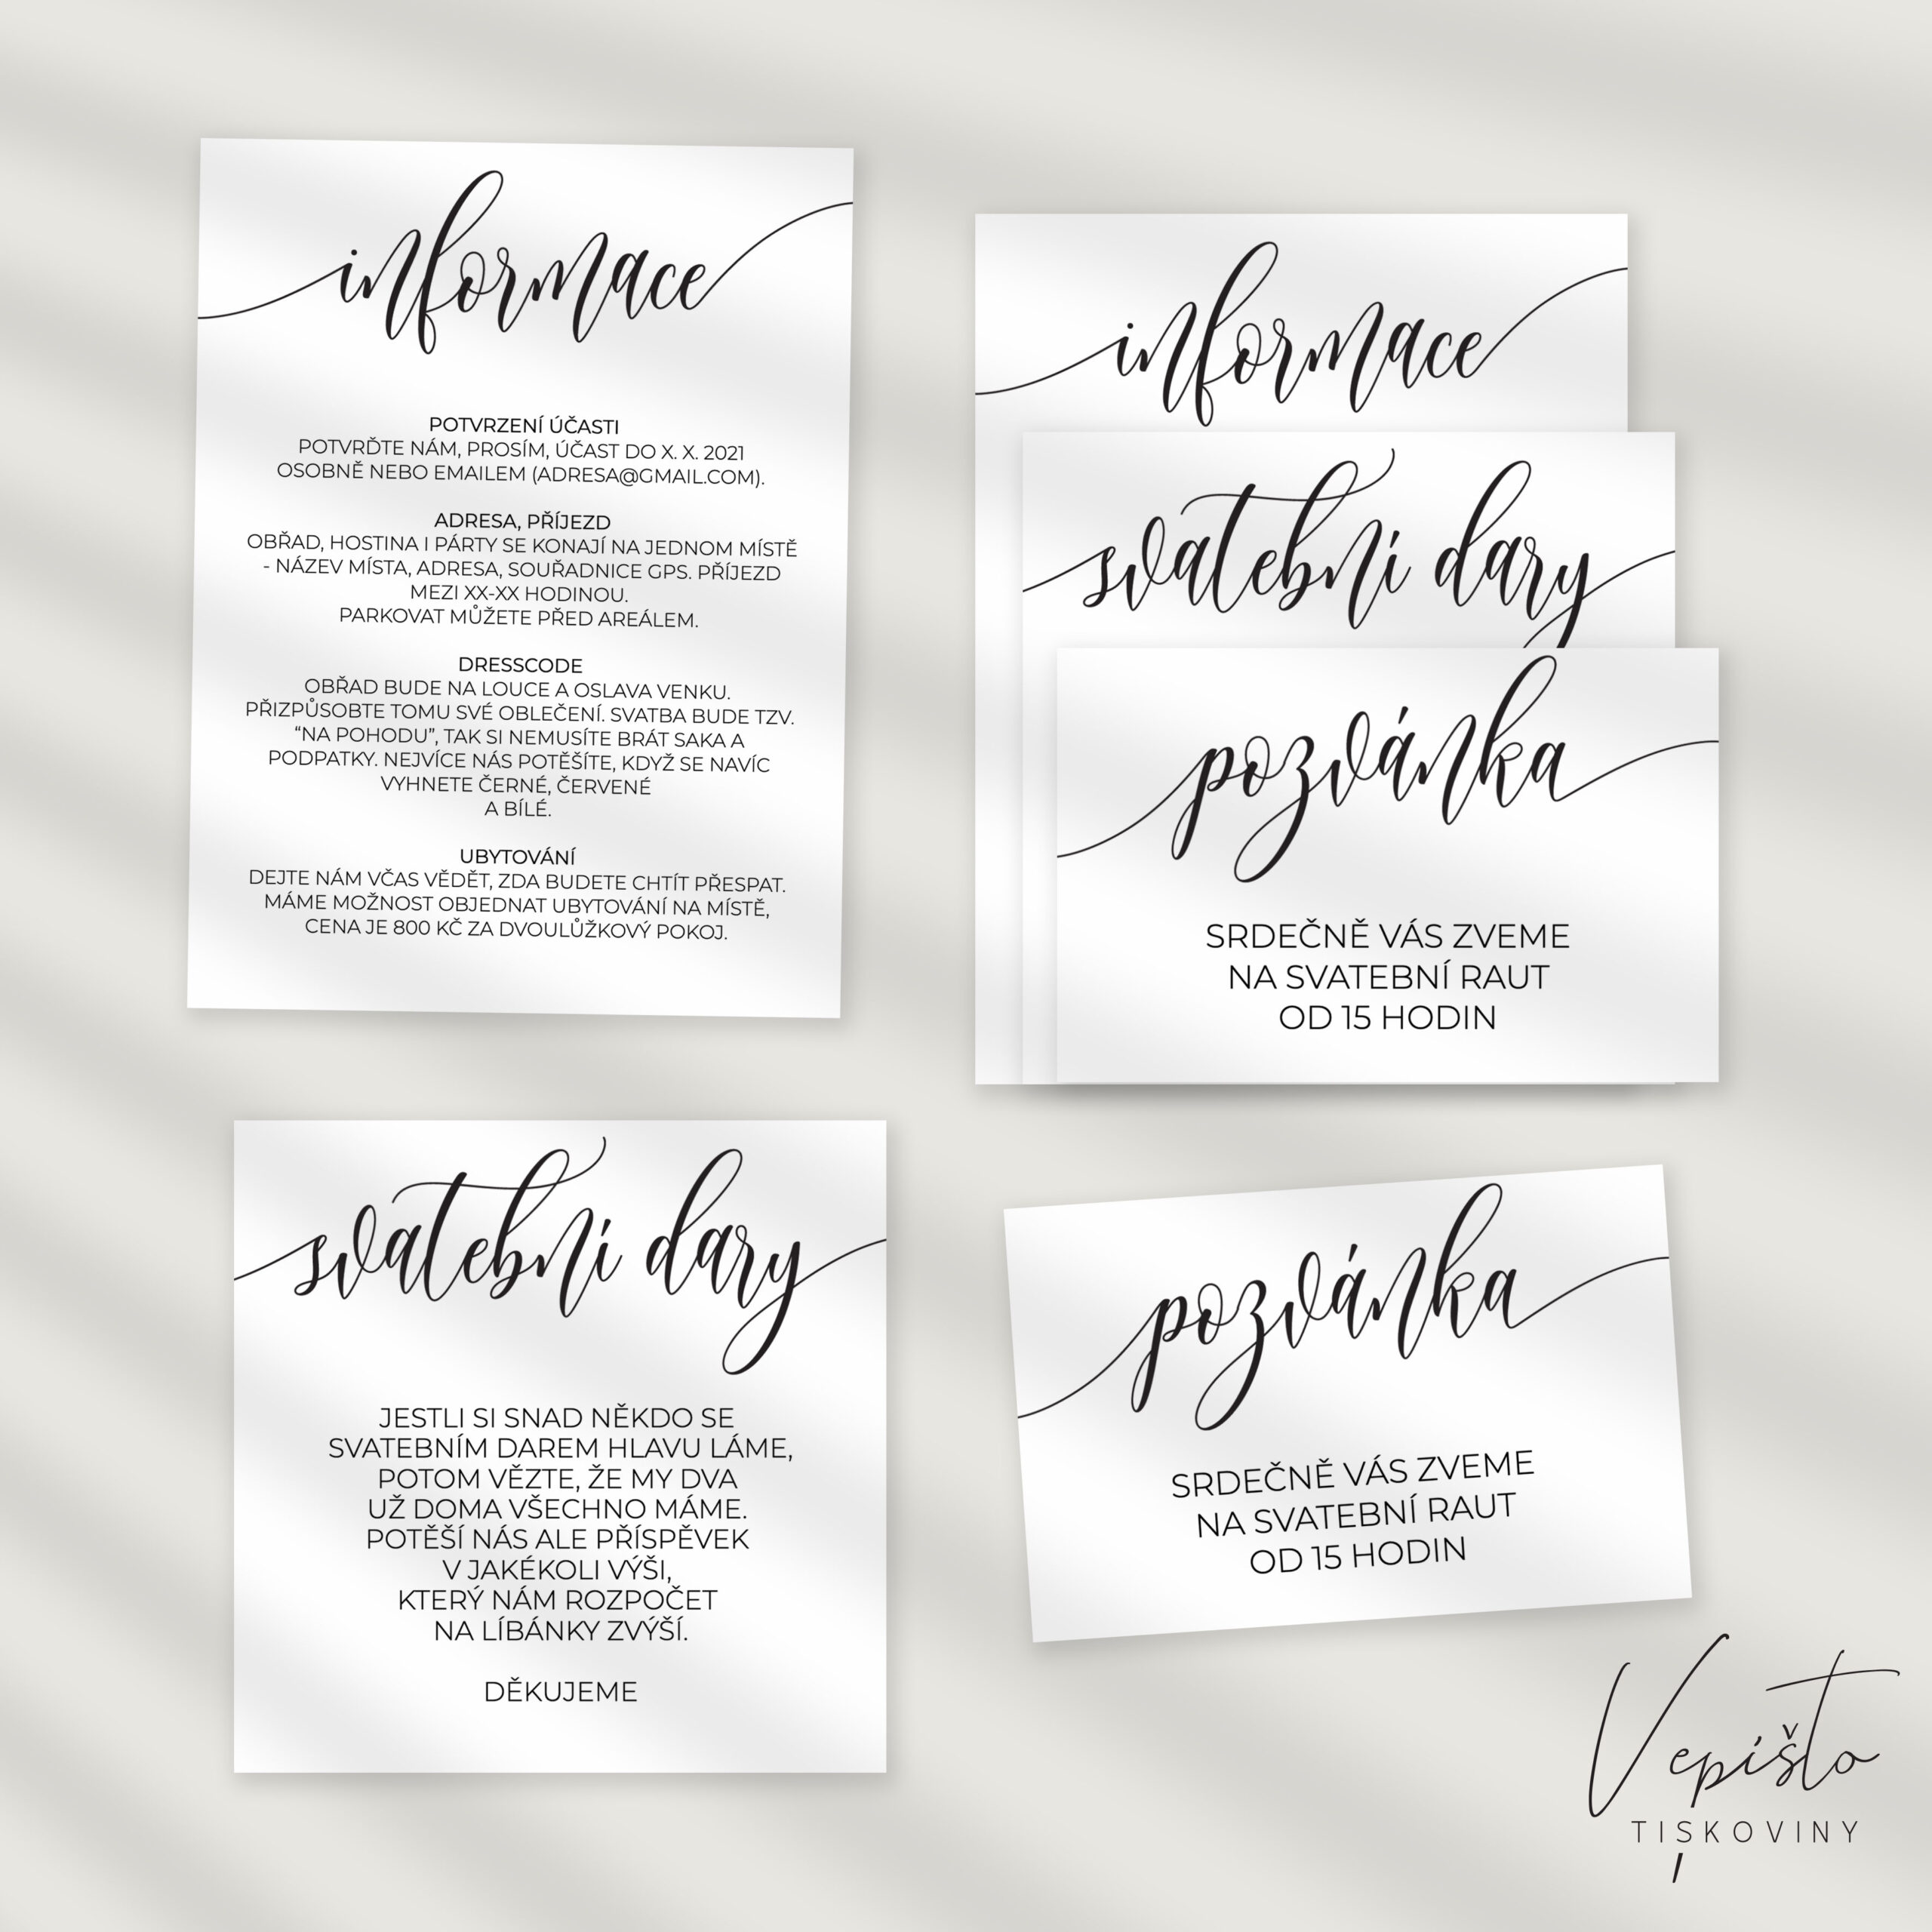 informace
POTVRZENÍ ÚČASTI
POTVRĎTE NÁM, PROSÍM, ÚČAST DO X. X. 2021
OSOBNĚ NEBO EMAILEM (ADRESA@GMAIL.COM).
ADRESA, PŘÍJEZD
OBŘAD, HOSTINA I PÁRTY SE KONAJÍ NA JEDNOM MÍSTĚ
- NÁZEV MÍSTA, ADRESA, SOUŘADNICE GPS. PŘÍJEZD
MEZI XX-XX HODINOU.
PARKOVAT MŮŽETE PŘED AREÁLEM.
DRESSCODE
OBŘAD BUDE NA LOUCE A OSLAVA VENKU.
PŘIZPŮSOBTE TOMU SVÉ OBLEČENÍ. SVATBA BUDE TZV.
“NA POHODU”, TAK SI NEMUSÍTE BRÁT SAKA A
PODPATKY. NEJVÍCE NÁS POTĚŠÍTE, KDYŽ SE NAVÍC
VYHNETE ČERNÉ, ČERVENÉ
A BÍLÉ.
UBYTOVÁNÍ
DEJTE NÁM VČAS VĚDĚT, ZDA BUDETE CHTÍT PŘESPAT.
MÁME MOŽNOST OBJEDNAT UBYTOVÁNÍ NA MÍSTĚ,
CENA JE 800 KČ ZA DVOULŮŽKOVÝ POKOJ.
informace
svatební dary
pozvánka
SRDEČNĚ VÁS ZVEME
NA SVATEBNÍ RAUT
OD 15 HODIN
svatební dary
JESTLI SI SNAD NĚKDO SE
SVATEBNÍM DAREM HLAVU LÁME,
POTOM VĚZTE, ŽE MY DVA
UŽ DOMA VŠECHNO MÁME.
POTĚŠÍ NÁS ALE PŘÍSPĚVEK
V JAKÉKOLI VÝŠI,
KTERÝ NÁM ROZPOČET
NA LÍBÁNKY ZVÝŠÍ.
DĚKUJEME
pozvánka
SRDEČNĚ VÁS ZVEME
NA SVATEBNÍ RAUT
OD 15 HODIN
Vepišto
TISKOVINY